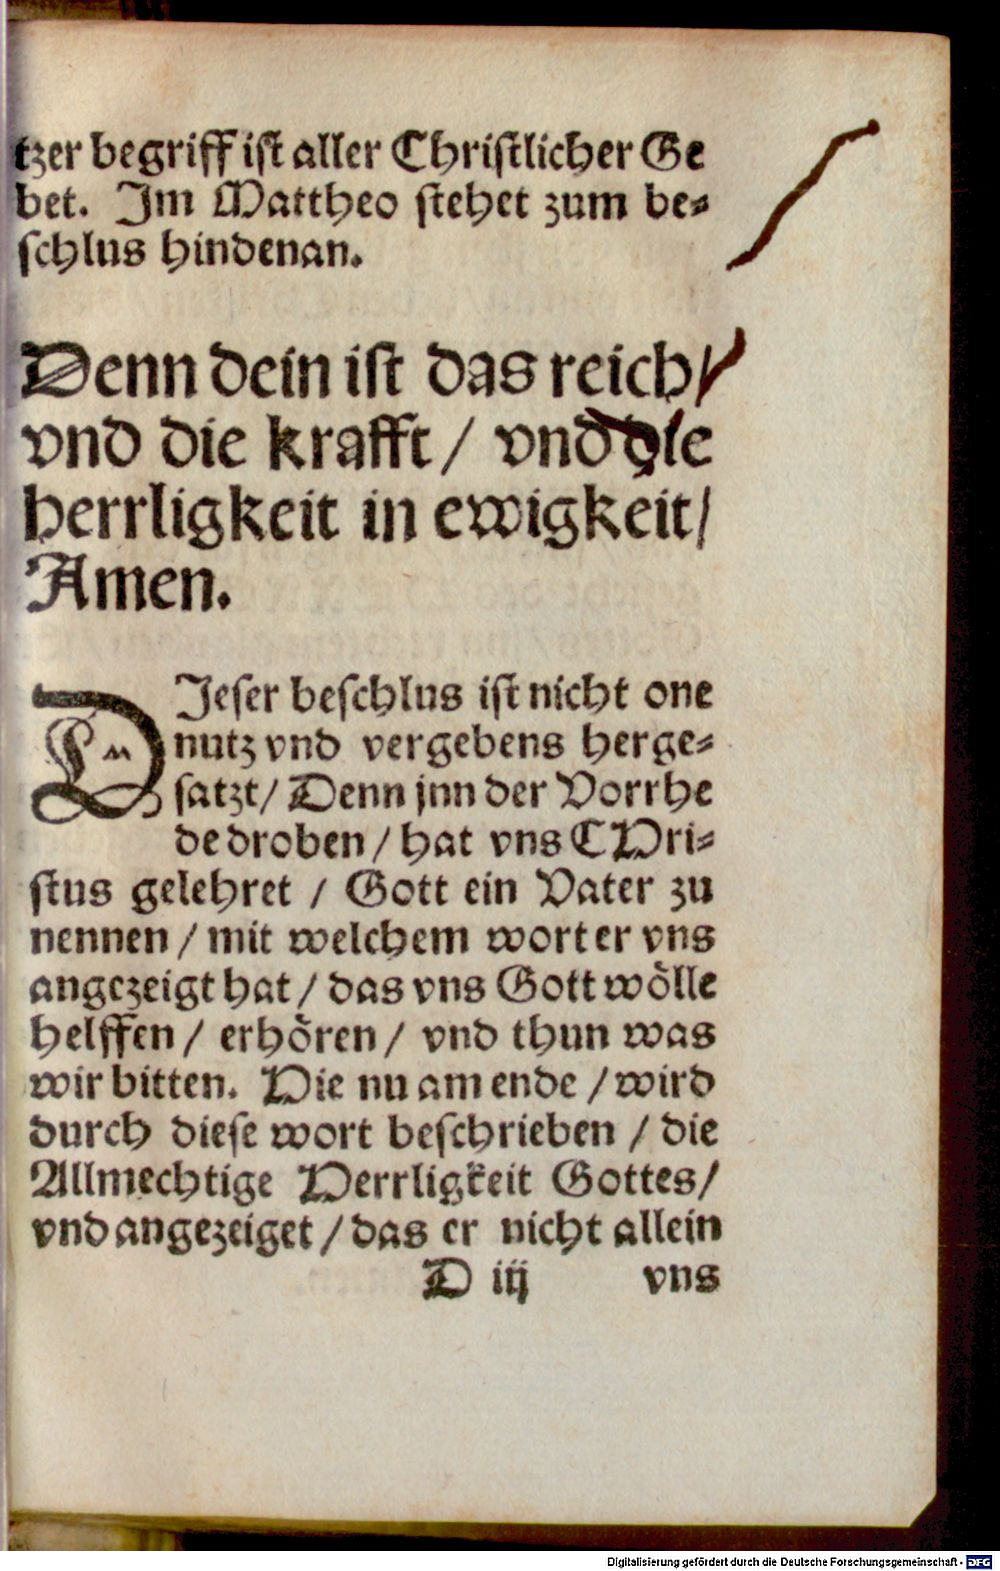 tzer begriff ist aller Christlicher Ge
bet. Im Mattheo stehet zum be⸗
schlus hindenan.
Denn dein ist das reich/
vnd die krafft / vnd die
herrligkeit in ewigkeit/
Amen.
DIeser beschlus ist nicht one
nutz vnd vergebens herge⸗
satzt/ Denn jnn der Vorrhe
de droben / hat vns CHri⸗
stus gelehret / Gott ein Vater zu
nennen / mit welchem wort er vns
angezeigt hat / das vns Gott wölle
helffen / erhören / vnd thun was
wir bitten. Hie nu am ende / wird
durch diese wort beschrieben / die
Allmechtige Herrligkeit Gottes/
vnd angezeiget / das er nicht allein
D iij vns
Digitalisierung gefördert durch die Deutsche Forschungsgemeinschaft - DFG